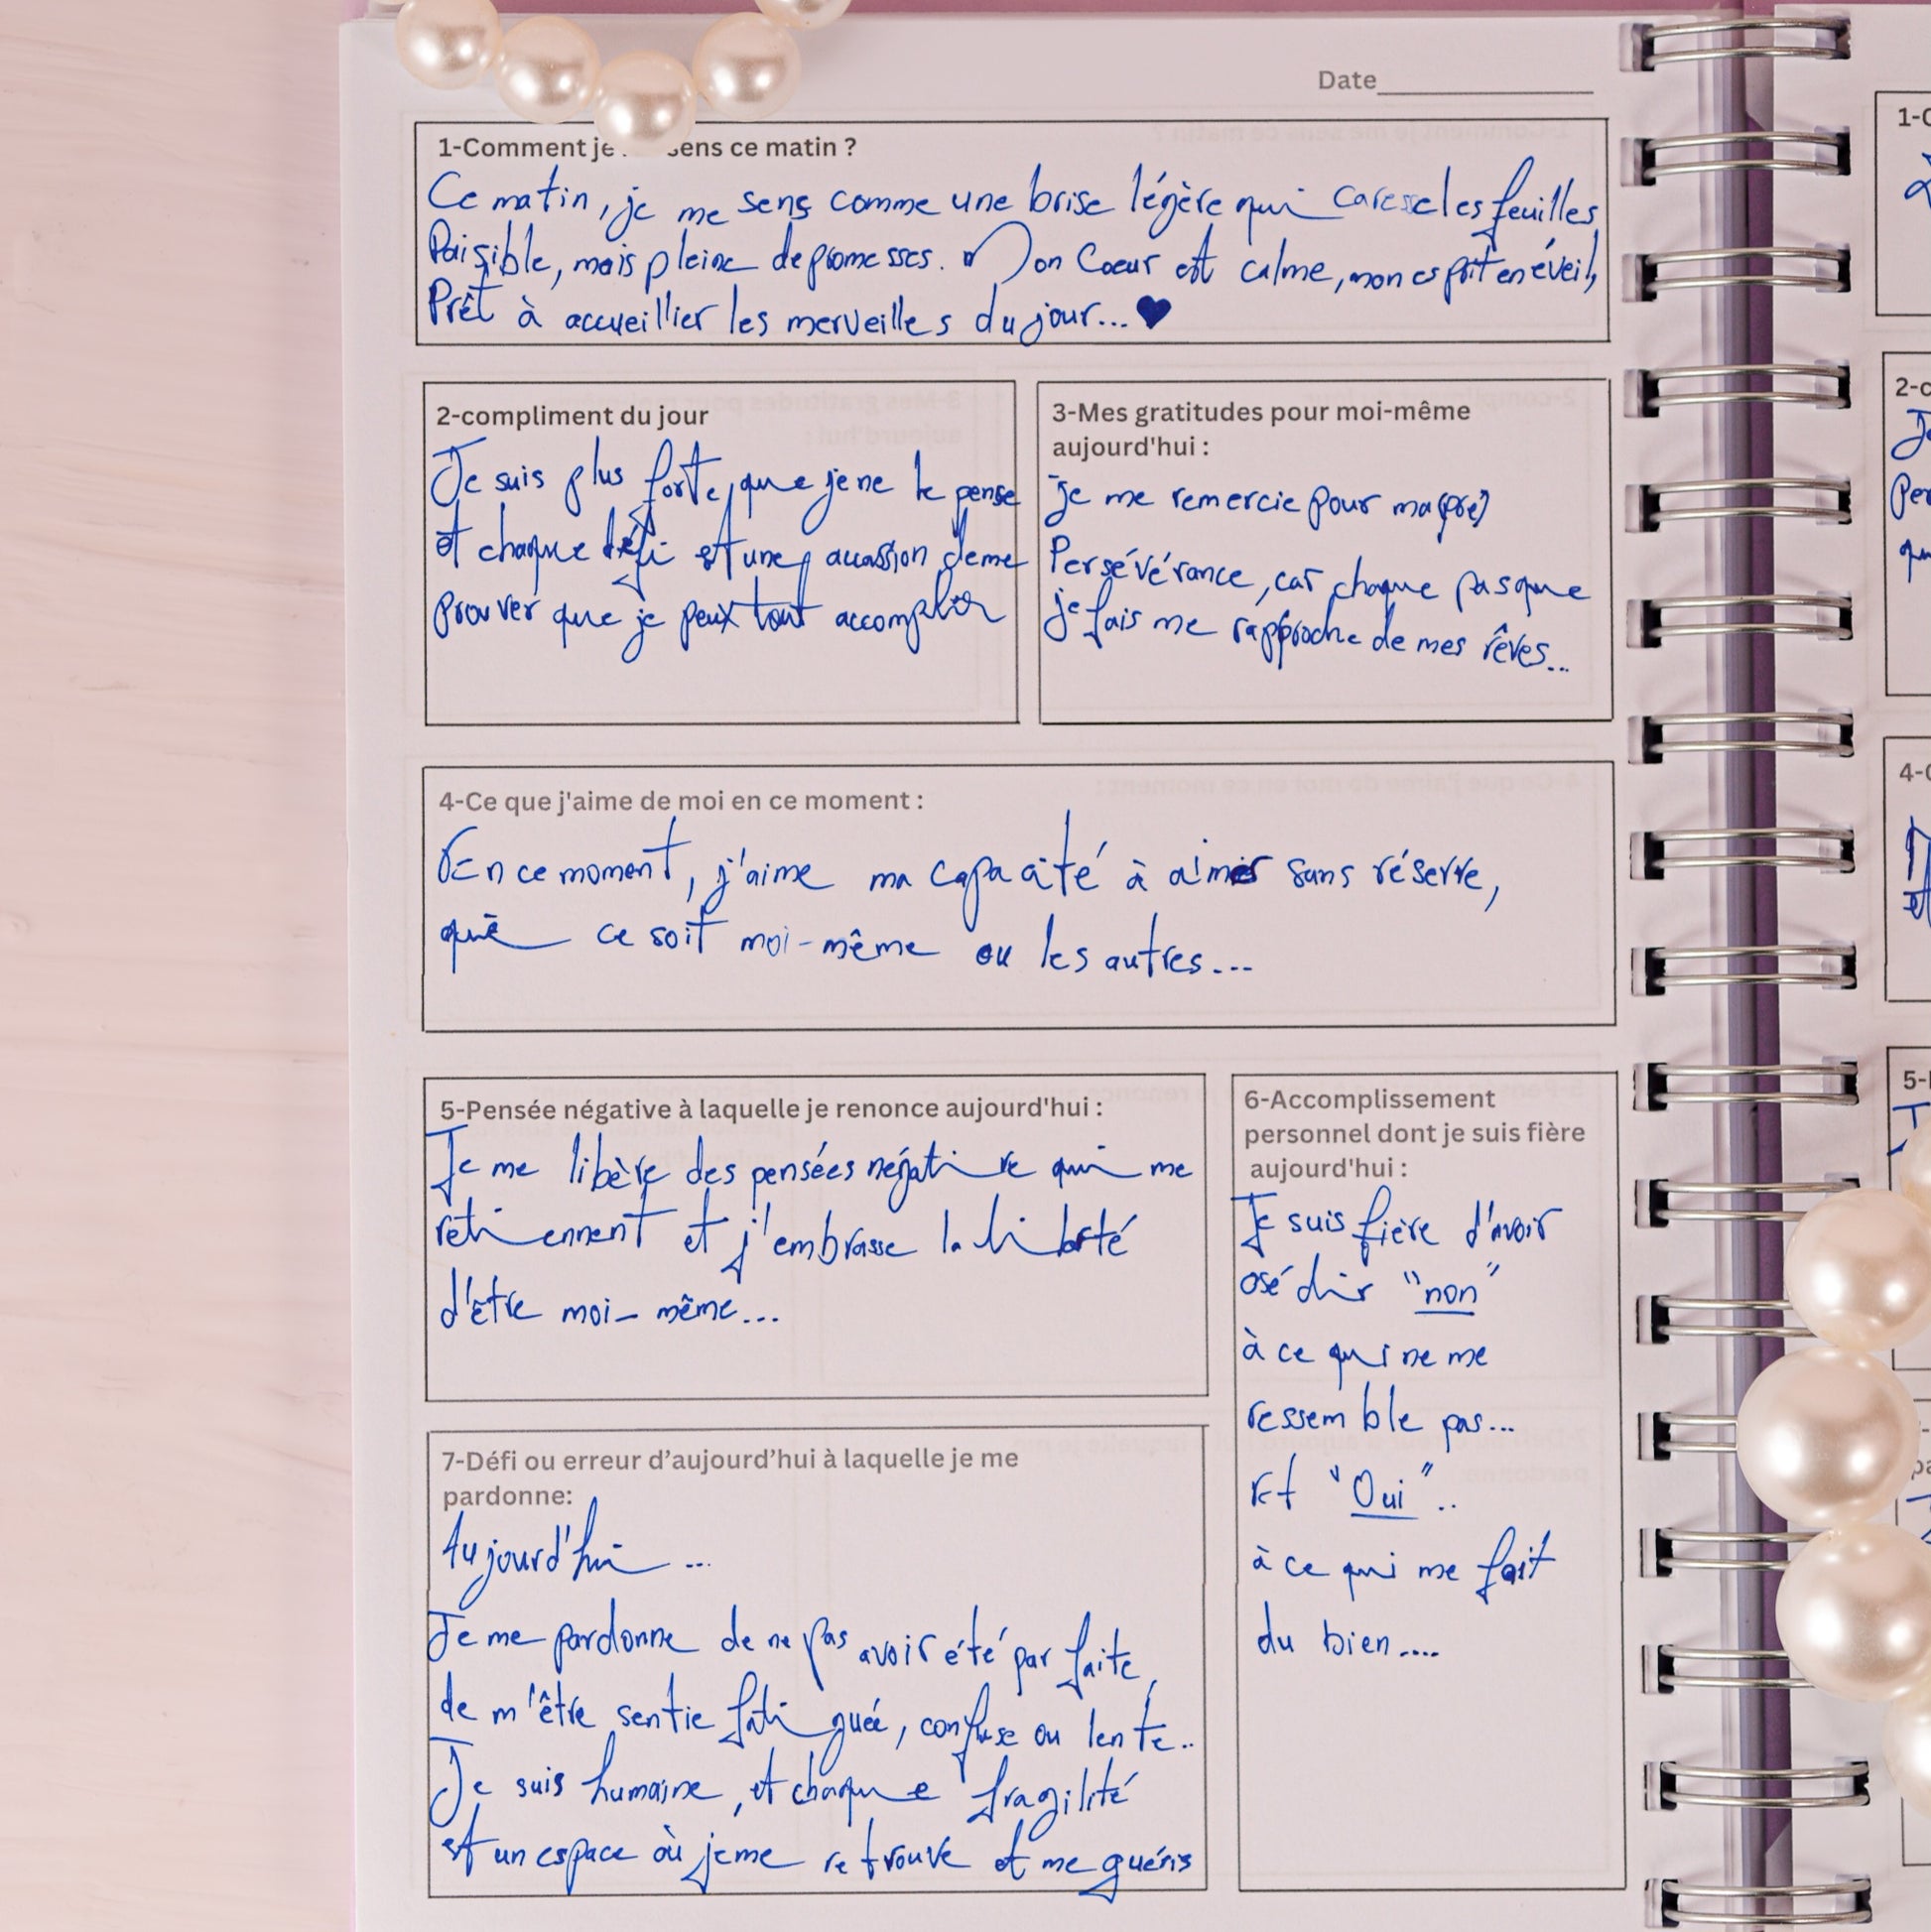 Date
1-Comment je sens ce matin ?
Ce matin, je me sens comme une brise légère qui caresse les feuilles
Paisible, mais pleine de promesses. Mon Coeur est calme, mon esprit en éveil,
Prêt à accueillier les merveilles du jour... ♥
2-compliment du jour
Je suis plus forte, que je ne le pense
et chaque défi est une accassion de me
prouver que je peux tout accomplir
3-Mes gratitudes pour moi-même
aujourd'hui :
je me remercie pour ma (pré)
Persévérance, car chaque pas que
je fais me rapproche de mes rêves...
4-Ce que j'aime de moi en ce moment :
En ce moment, j'aime ma capacité à aimer sans réserve,
que ce soit moi-même ou les autres...
5-Pensée négative à laquelle je renonce aujourd'hui :
Je me libère des pensées négative qui me
retiennent et j'embrasse la liberté
d'être moi-même...
6-Accomplissement
personnel dont je suis fière
aujourd'hui :
Je suis fière d'avoir
osé dir "non"
à ce qui ne me
ressemble pas...
et "Oui"..
à ce qui me fait
du bien....
7-Défi ou erreur d'aujourd'hui à laquelle je me
pardonne:
Aujourd'hui ...
Je me pardonne de ne pas avoir été parfaite,
de m'être sentie fatiguée, confuse ou lente..
Je suis humaine, et chaque fragilité
est un espace où je me retrouve et me guéris